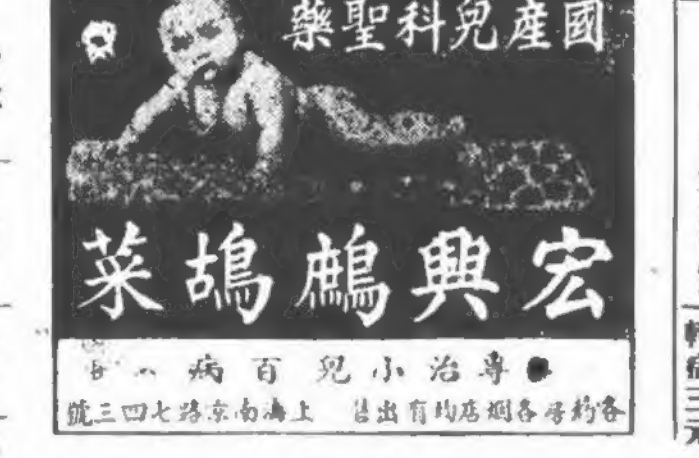 國產兒科聖藥
宏興鷓鴣菜
專治小兒百病
各葯房各烟店均有出售 上海南京路七四三號